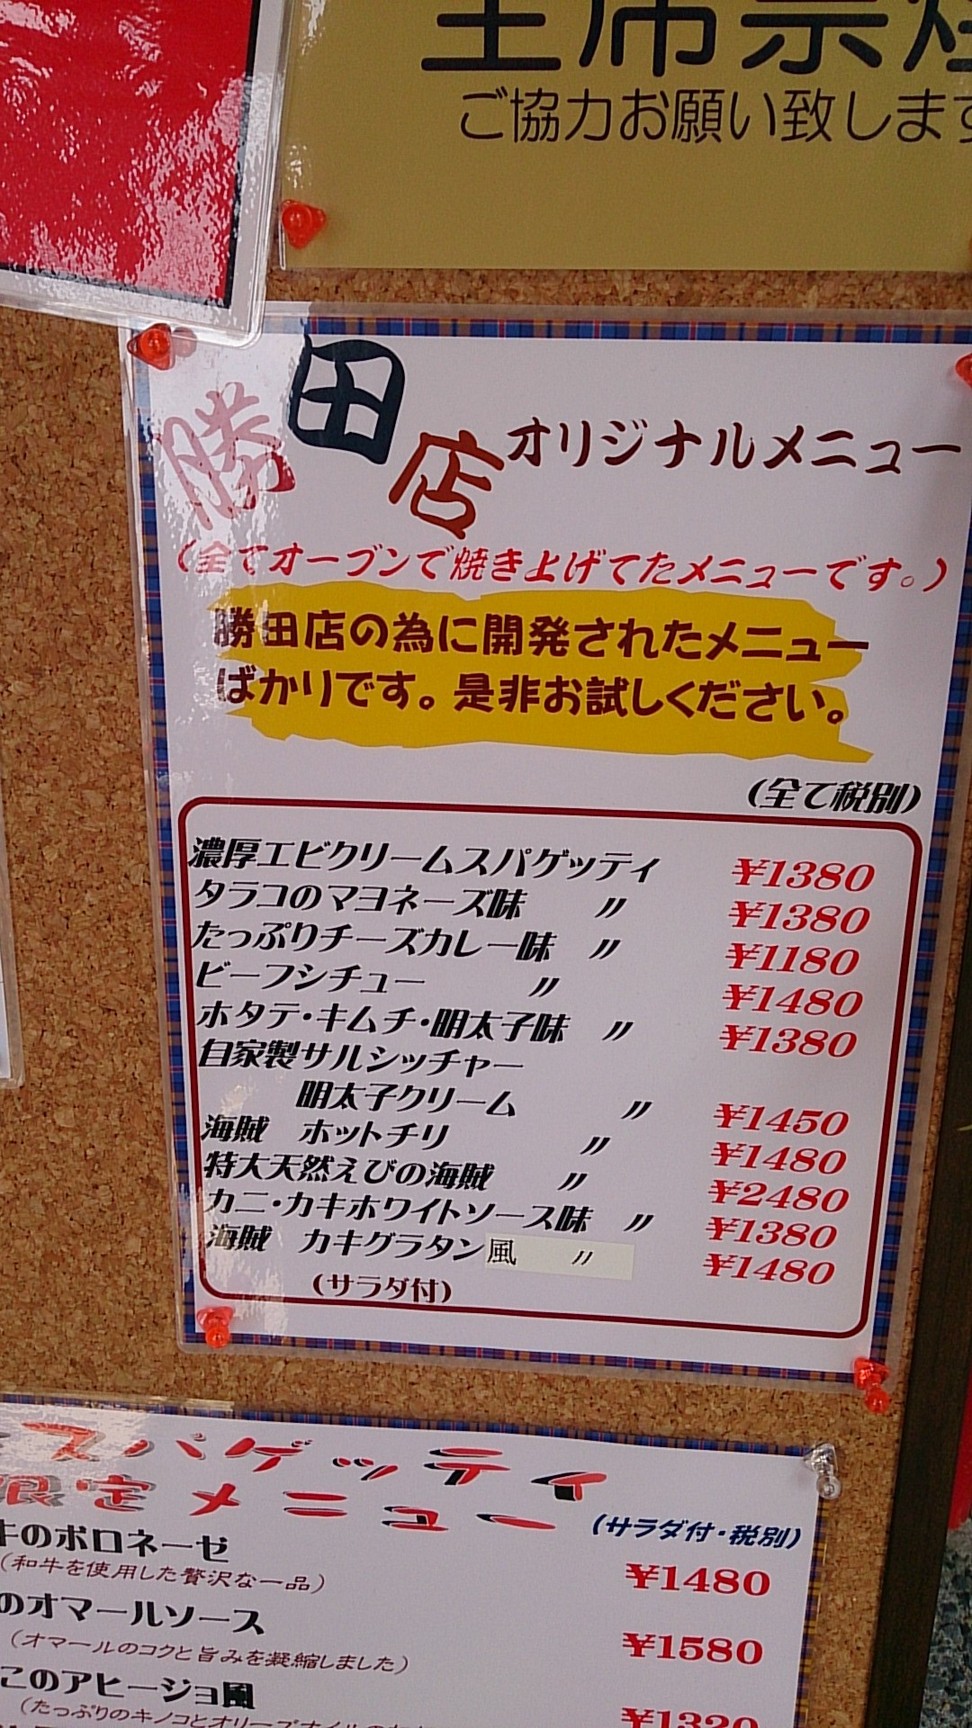 全席禁煙
ご協力お願い致します
勝田店オリジナルメニュー
(全てオーブンで焼き上げてたメニューです。)
勝田店の為に開発されたメニュー
ばかりです。是非お試しください。
(全て税別)
濃厚エビクリームスパゲッティ ¥1380
タラコのマヨネーズ味 〃 ¥1380
たっぷりチーズカレー味 〃 ¥1180
ビーフシチュー 〃 ¥1480
ホタテ・キムチ・明太子味 〃 ¥1380
自家製サルシッチャー
明太子クリーム 〃 ¥1450
海賊 ホットチリ 〃 ¥1480
特大天然えびの海賊 〃 ¥2480
カニ・カキホワイトソース味 〃 ¥1380
海賊 カキグラタン風 〃 ¥1480
(サラダ付)
スパゲッティ
限定メニュー (サラダ付・税別)
牛のボロネーゼ ¥1480
(和牛を使用した贅沢な一品)
のオマールソース ¥1580
(オマールのコクと旨みを凝縮しました)
このアヒージョ風 ¥1320
(たっぷりのキノコとオリーブオイルの